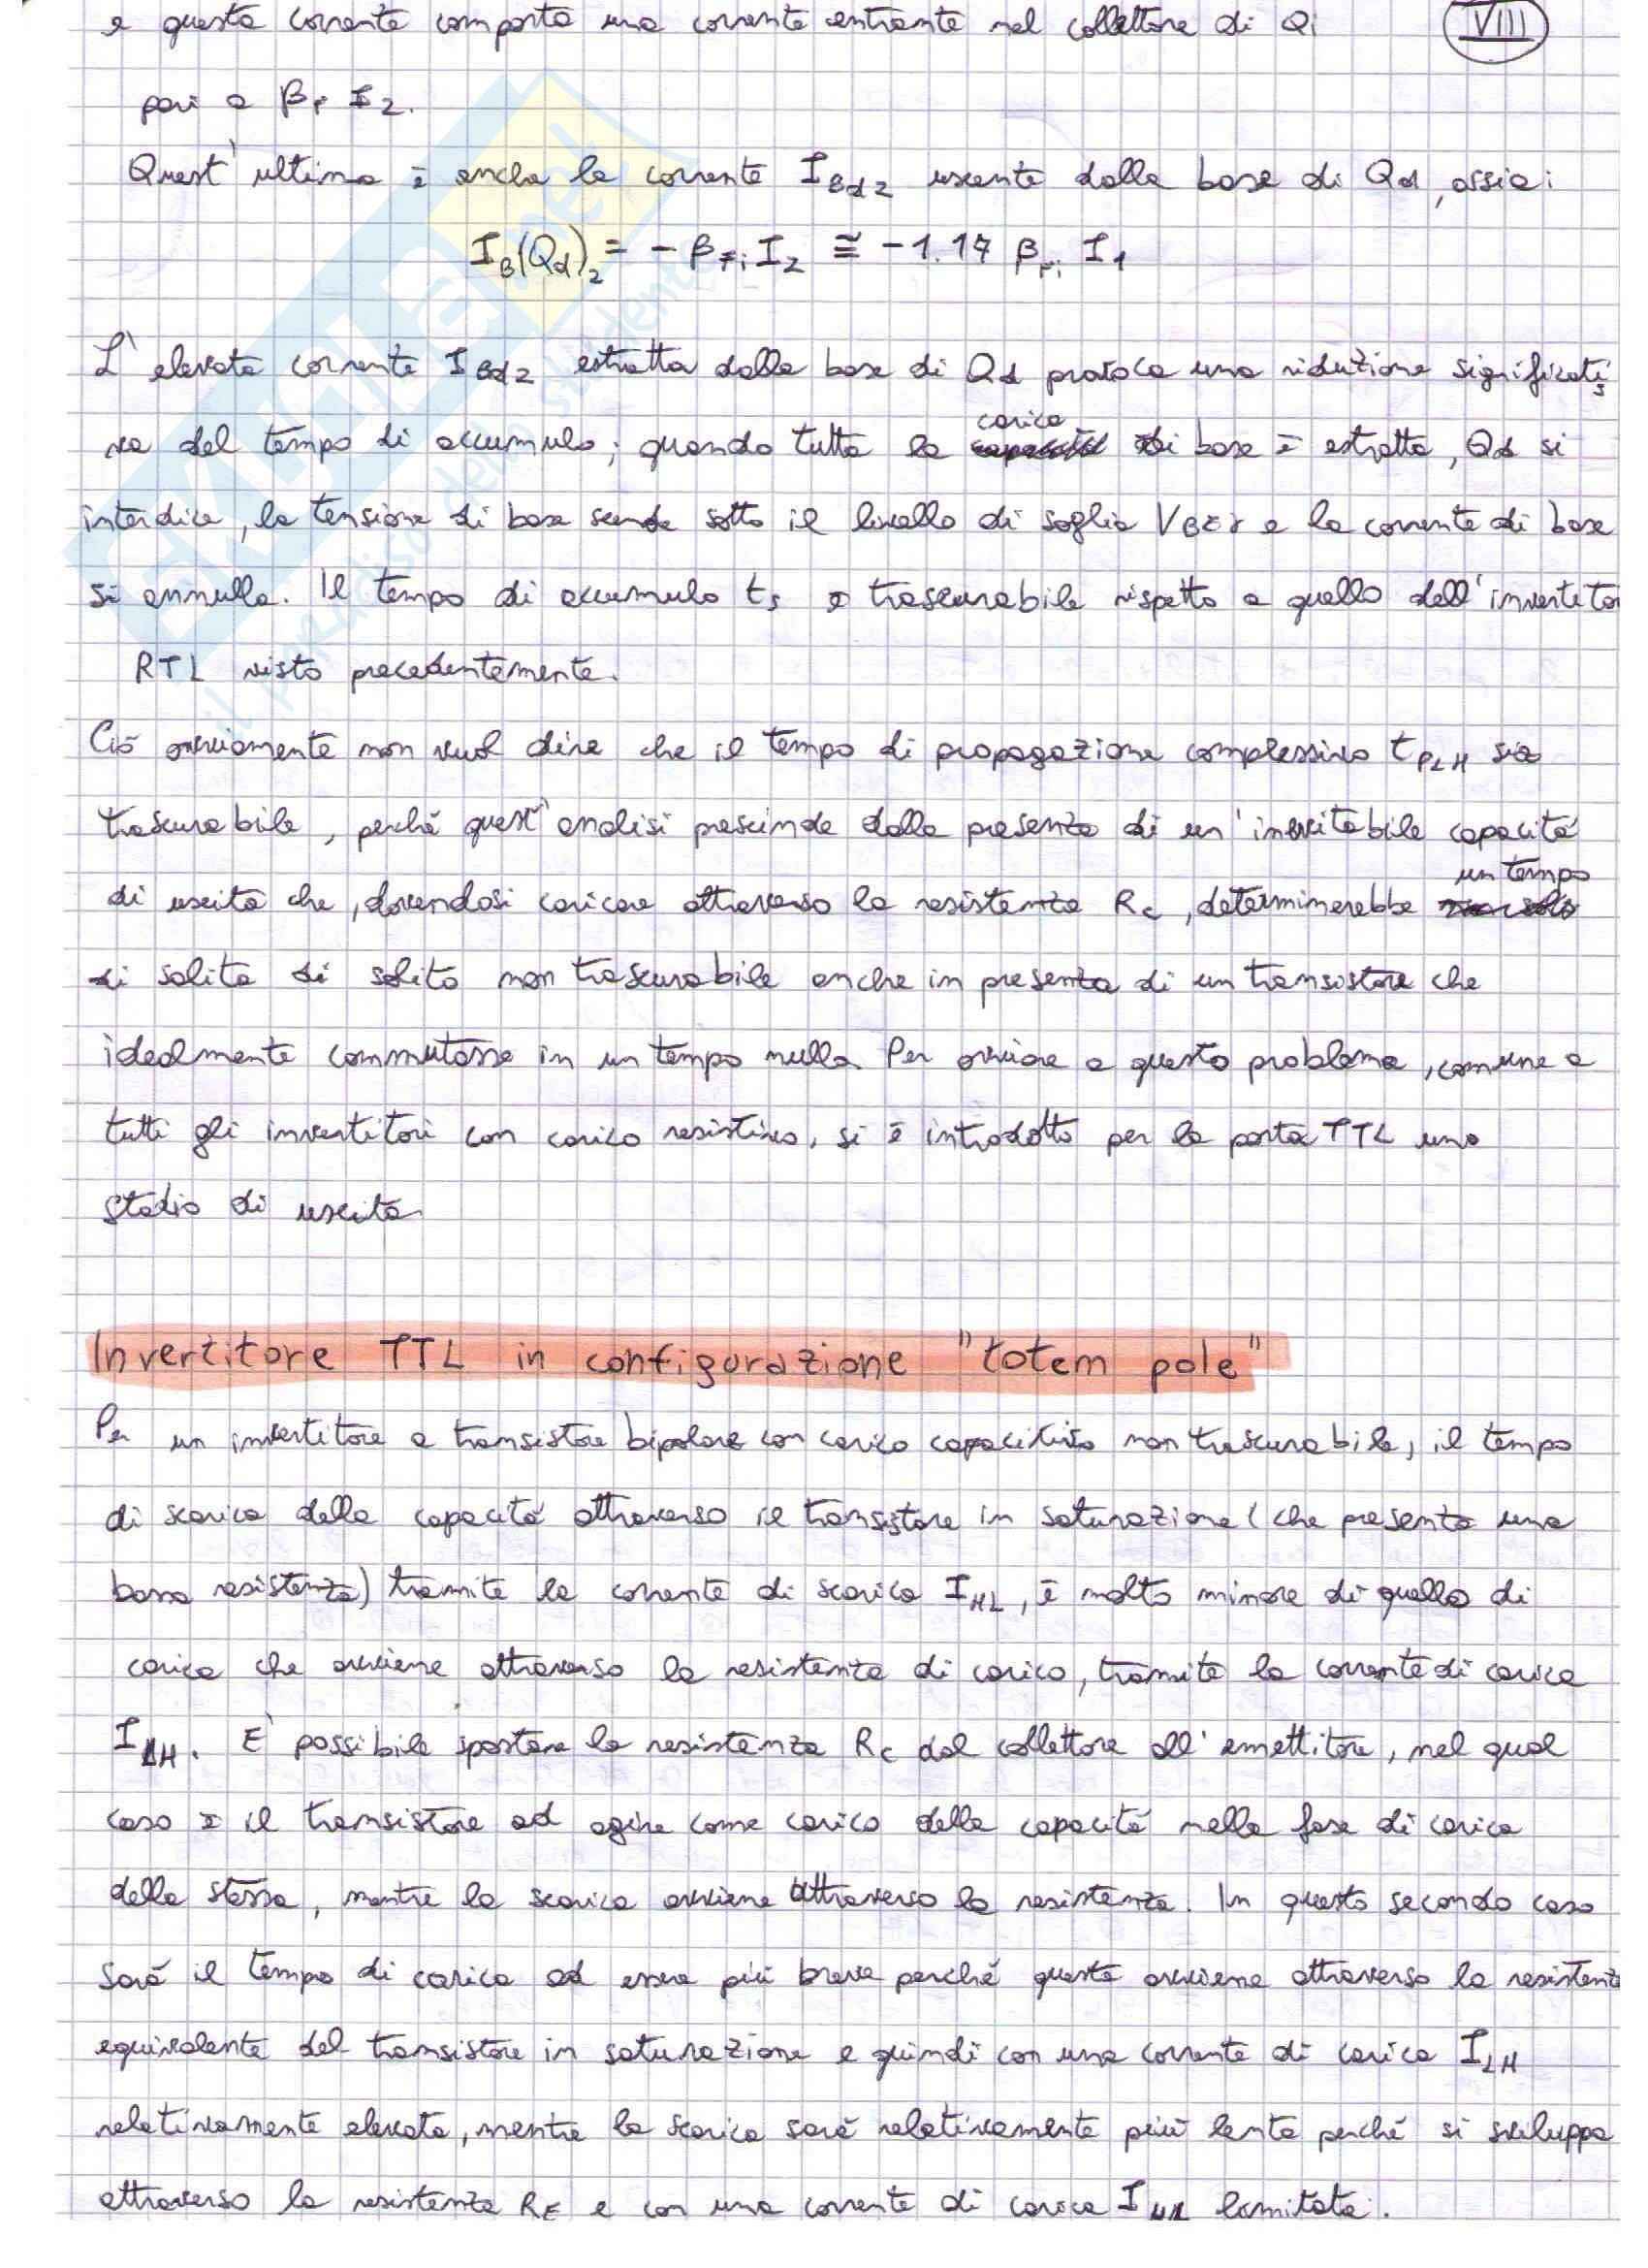 e questa corrente comporta una corrente entrante nel collettore di Qi
VIII
pari a βF I2.
Quest'ultima è anche la corrente IBd2 uscente dalla base di Qd, ossia:
IB(Qd)2 = - βFi I2 ≅ -1.17 βFi I1
L'elevata corrente IBd2 estratta dalla base di Qd provoca una riduzione significati
va del tempo di accumulo; quando tutta la carica di base è estratta, Qd si
interdice, la tensione di base scende sotto il livello di soglia VBEγ e la corrente di base
si annulla. Il tempo di accumulo ts è trascurabile rispetto a quello dell'invertito
RTL visto precedentemente.
Ciò ovviamente non vuol dire che il tempo di propagazione complessivo tPLH sia
trascurabile, perché quest'analisi prescinde dalla presenza di un'inevitabile capacità
di uscita che, dovendosi caricare attraverso la resistenza Rc, determinerebbe un tempo
di salita di solito non trascurabile anche in presenza di un transistore che
idealmente commutasse in un tempo nullo. Per ovviare a questo problema, comune a
tutti gli invertitori con carico resistivo, si è introdotto per la porta TTL uno
stadio di uscita
Invertitore TTL in configurazione "totem pole"
Per un invertitore a transistore bipolare con carico capacitivo non trascurabile, il tempo
di scarica della capacità attraverso il transistore in saturazione (che presenta una
bassa resistenza) tramite la corrente di scarica IHL, è molto minore di quello di
carica che avviene attraverso la resistenza di carico, tramite la corrente di carica
ILH. E' possibile spostare la resistenza Rc dal collettore all'emettitore, nel qual
caso è il transistore ad agire come carico della capacità nella fase di carica
della stessa, mentre la scarica avviene attraverso la resistenza. In questo secondo caso
sarà il tempo di carica ad essere più breve perché questa avviene attraverso la resistenz
equivalente del transistore in saturazione e quindi con una corrente di carica ILH
relativamente elevata, mentre la scarica sarà relativamente più lenta perché si sviluppa
attraverso la resistenza RE e con una corrente di carica IHL limitata.